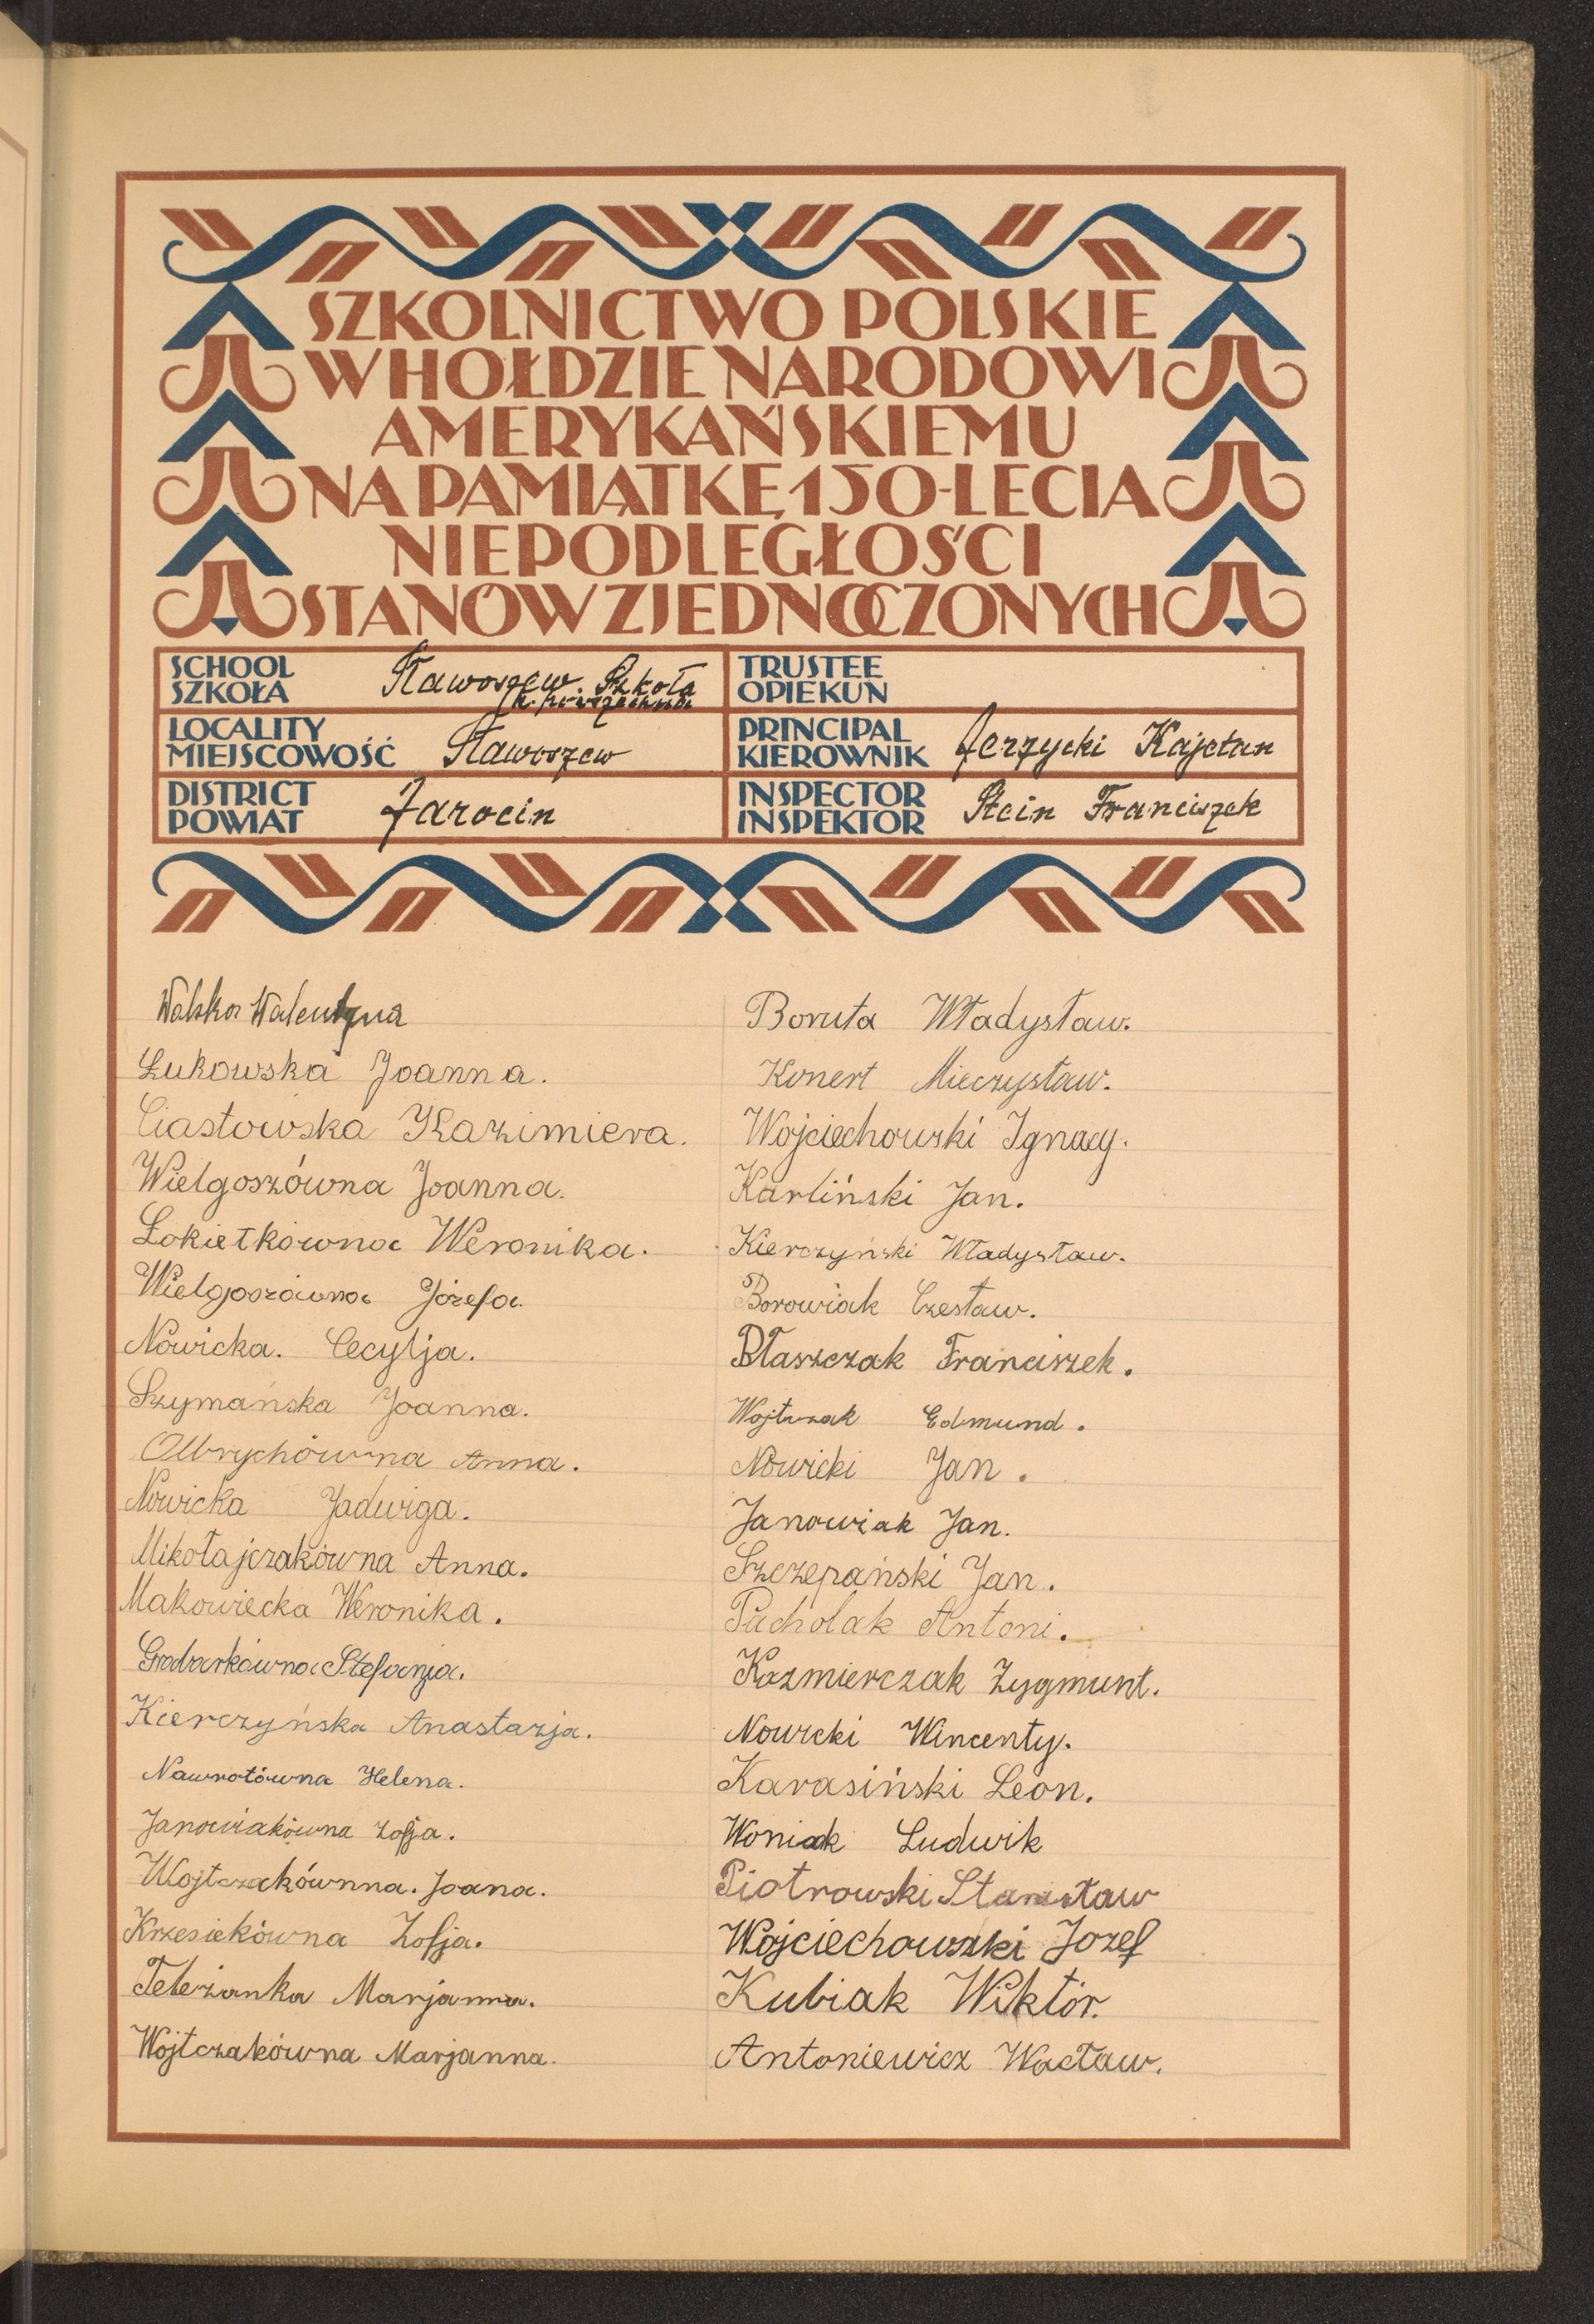 SZKOLNICTWO POLSKIE
W HOŁDZIE NARODOWI
AMERYKAŃSKIEMU
NA PAMIĄTKĘ 150-LECIA
NIEPODLEGŁOŚCI
STANÓW ZJEDNOCZONYCH
SCHOOL
SZKOŁA
Sławoszew. Szkoła
k. powszechna
TRUSTEE
OPIEKUN
LOCALITY
MIEJSCOWOŚĆ
Sławoszew
PRINCIPAL
KIEROWNIK
Jerzycki Kajetan
DISTRICT
POWIAT
Jarocin
INSPECTOR
INSPEKTOR
Stein Franciszek
Walentyna
Łukowska Joanna.
Ciastowska Kazimiera.
Wielgoszówna Joanna.
Łokietkówna Weronika.
Wielgoszówna Józefa.
Nowicka. Cecylja.
Szymańska Joanna.
Olbrychówna Anna.
Nowicka Jadwiga.
Mikołajczakówna Anna.
Makowiecka Weronika.
Grobarkówna Stefanja.
Kierczyńska Anastazja.
Nawrotówna Helena.
Janowiakówna Zofja.
Wojtczakównna. Joana.
Krzesiekówna Zofja.
Teleżanka Marjanna.
Wojtczakówna Marjanna.
Boruta Władysław.
Konert Mieczysław.
Wojciechowski Ignacy.
Karliński Jan.
Kierczyński Władysław.
Borowiak Czesław.
Błaszczak Franciszek.
Wojtczak Edmund.
Nowicki Jan.
Janowiak Jan.
Szczepański Jan.
Pacholak Antoni.
Kazmierczak Zygmunt.
Nowicki Wincenty.
Karasiński Leon.
Woniak Ludwik
Piotrowski Stanisław
Wojciechowski Jozef
Kubiak Wiktór.
Antoniewicz Wacław.